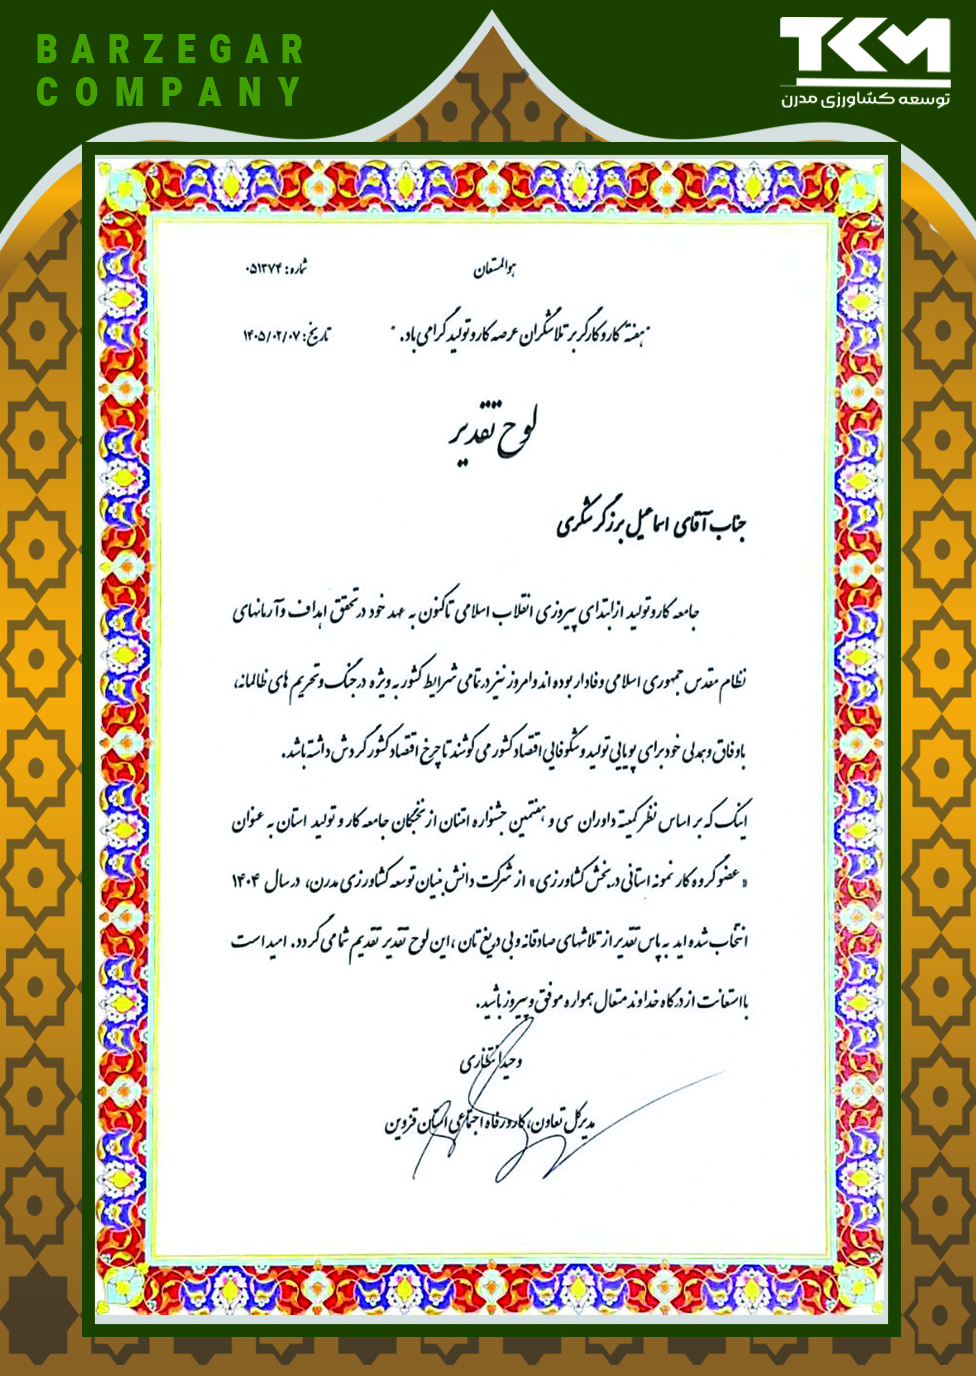 BARZEGAR
COMPANY
TKM
توسعه کشاورزی مدرن
هوالمستعان
شماره: ۰۵۱۳۷۴
"هفته کار و کارگر بر تلاشگران عرصه کار و تولید گرامی باد."
تاریخ: ۱۴۰۵/۰۲/۰۷
لوح تقدیر
جناب آقای اسماعیل برزگر شکری
جامعه کار و تولید از ابتدای پیروزی انقلاب اسلامی تاکنون به عهد خود در تحقق اهداف و آرمانهای
نظام مقدس جمهوری اسلامی وفادار بوده اند و امروز نیز در تمامی شرایط کشور به ویژه در جنگ و تحریم های ظالمانه،
با وفاق و همدلی خود برای پویایی تولید و شکوفایی اقتصاد کشور می کوشند تا چرخ اقتصاد کشور گردش داشته باشد.
اینک که بر اساس نظر کمیته داوران سی و هفتمین جشنواره امتنان از نخبگان جامعه کار و تولید استان به عنوان
«عضو گروه کار نمونه استانی در بخش کشاورزی» از شرکت دانش بنیان توسعه کشاورزی مدرن، در سال ۱۴۰۴
انتخاب شده اید به پاس تقدیر از تلاشهای صادقانه و بی دریغ تان ، این لوح تقدیر تقدیم شما می گردد. امید است
با استعانت از درگاه خداوند متعال همواره موفق و پیروز باشید.
وحید انتظاری
مدیرکل تعاون، کار و رفاه اجتماعی استان قزوین